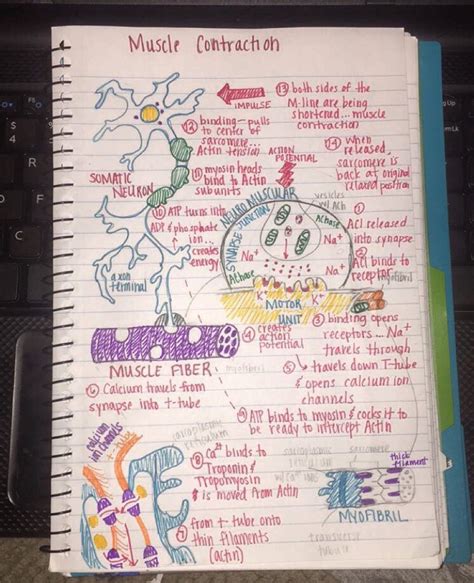 Muscle Contraction
IMPULSE
⑬ both sides of the
M-line are being
shortened... muscle
contraction
⑫ binding-pulls
to center of
sarcomere...
Actin tension
ACTION
POTENTIAL
⑭ When
released,
sarcomere is
back at original
relaxed position
SOMATIC
NEURON
⑪ myosin heads
bind to Actin
subunits
NEUROMUSCULAR
JUNCTION
SYNAPSE
vesicles
w/ ACh
⑩ ATP turns into
ADP & phosphate
ion...
creates
energy
AChase
Na+
Na+
AChase
① ACl released
into synapse
② ACl binds to
receptor
myofibril
axon
terminal
K+
K+
MOTOR
UNIT
③ binding opens
receptors... Na+
travels through
④ creates
action
potential
MUSCLE FIBER
myofibril
⑤ travels down T-tube
& opens calcium ion
channels
⑥ Calcium travels from
synapse into t-tube
⑨ ATP binds to myosin & cocks it to
be ready to intercept Actin
calcium
ion channels
t-tube
sarcoplasmic
reticulum
⑧ Ca2+ binds to
Troponin &
Tropomyosin
& is moved from Actin
sarcoplasmic
w/ Ca2+
sarcomere
thick
filament
MYOFIBRIL
⑦ from t-tube onto
thin filaments
(actin)
transverse
tubule